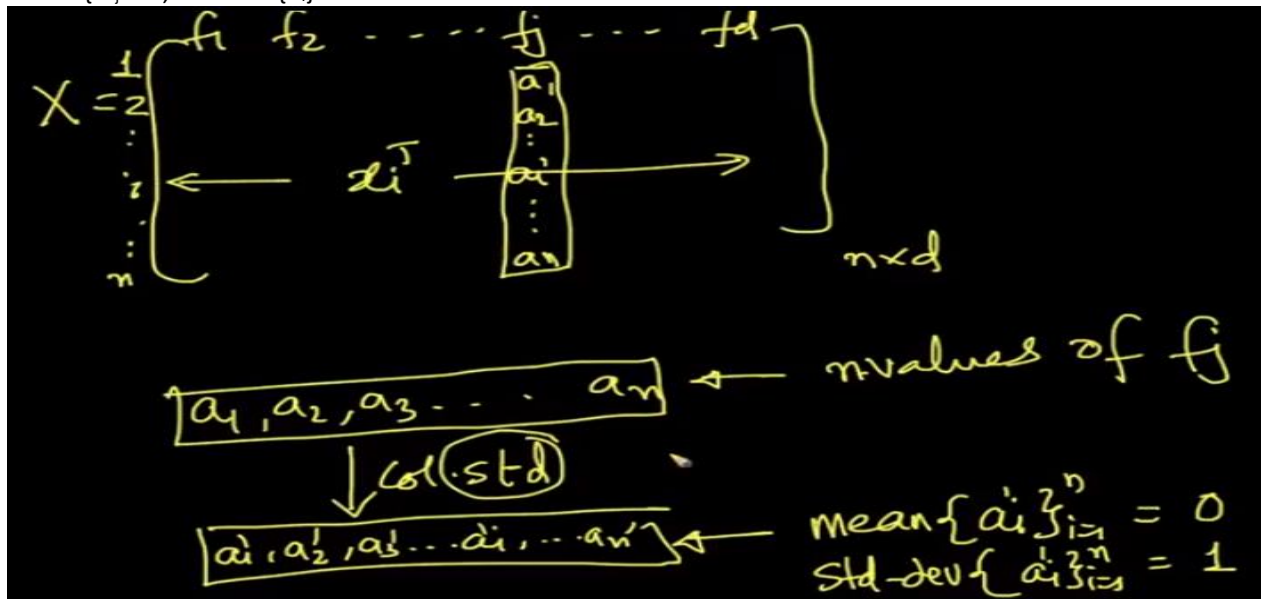 f1 f2 ..... fj ... fd
1
X = 2
:
i
xiᵀ
:
n
a1
a2
:
ai
:
an
n×d
a1, a2, a3 . . . . an ← n values of fj
col. std
a1', a2', a3' ... ai', ... an' ← mean{ai'}ⁿi=1 = 0
std-dev{ai'}ⁿi=1 = 1